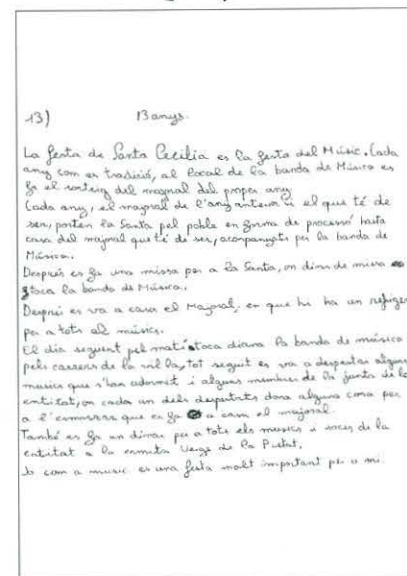 13) 13 anys.
La festa de Santa Cecilia es la festa del Músic. Cada
any com es tradisió, al local de la banda de Música es
fa el sorteig del majoral del proper any.
Cada any, el majoral de l'any anterior i el que té de
ser, porten la Santa pel poble en forma de processó hasta
casa del majoral que té de ser, acompanyats per la banda de
Música.
Després es fa una missa per a la Santa, on dins de missa
toca la banda de Música.
Després es va a casa el Majoral, en que hi ha un refriger
per a tots els músics.
El dia seguent pel matí toca diana la banda de música
pels carrers de la vil la, tot seguit es va a despertar alguns
musics que s'han adormit i alguns membres de la junta de la
entitat, on cada un dels despertats dona alguna cosa per
a l'esmorzar que es fa a casa el majoral.
També es fa un dinar per a tots els musics i socis de la
entitat a la ermita Verge de la Pietat.
Jo com a music es una festa molt important per a mi.